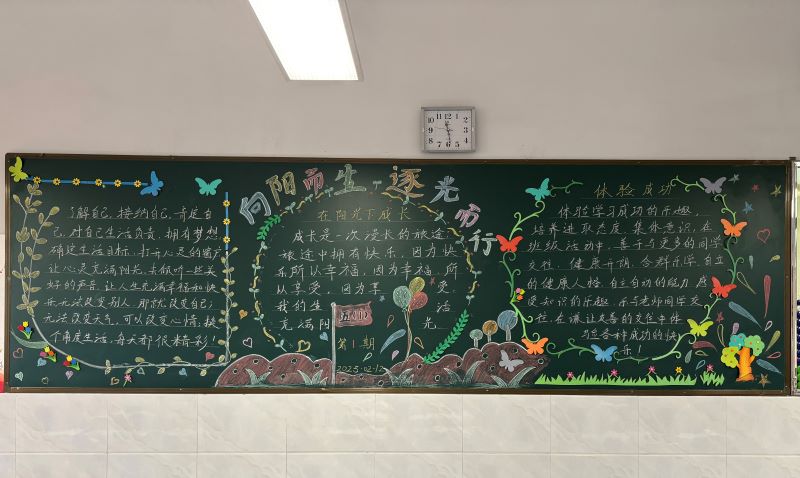 向阳而生 逐光而行
了解自己,接纳自己,肯定自
己,对自己生活负责,拥有梦想
确定生活目标,打开心灵的窗户
让心灵充满阳光,去倾听一些美
好的声音,让人生充满幸福和快
乐无法改变别人,那就改变自己;
无法改变天气,可以改变心情,换
个角度生活,每天都很精彩!
在阳光下成长
成长是一次漫长的旅途,
旅途中拥有快乐,因为快
乐所以幸福,因为幸福,所
以享受,因为享受,
我的生活
充满阳光
五(1)
第1期
2025.02.12
体验成功
体验学习成功的乐趣,
培养进取态度,集体意识,在
班级活动中,善于与更多的同学
交往,健康开朗,合群乐学,自立
的健康人格,自主自动的能力,感
受知识的乐趣,乐与老师同学交
往,在谦让友善的交往中体
与各种成功的快
乐!